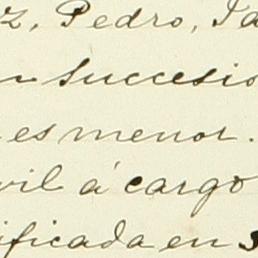 z, Pedro, Ta
n Sucesio
es menor.
vil á cargo
ificada en s